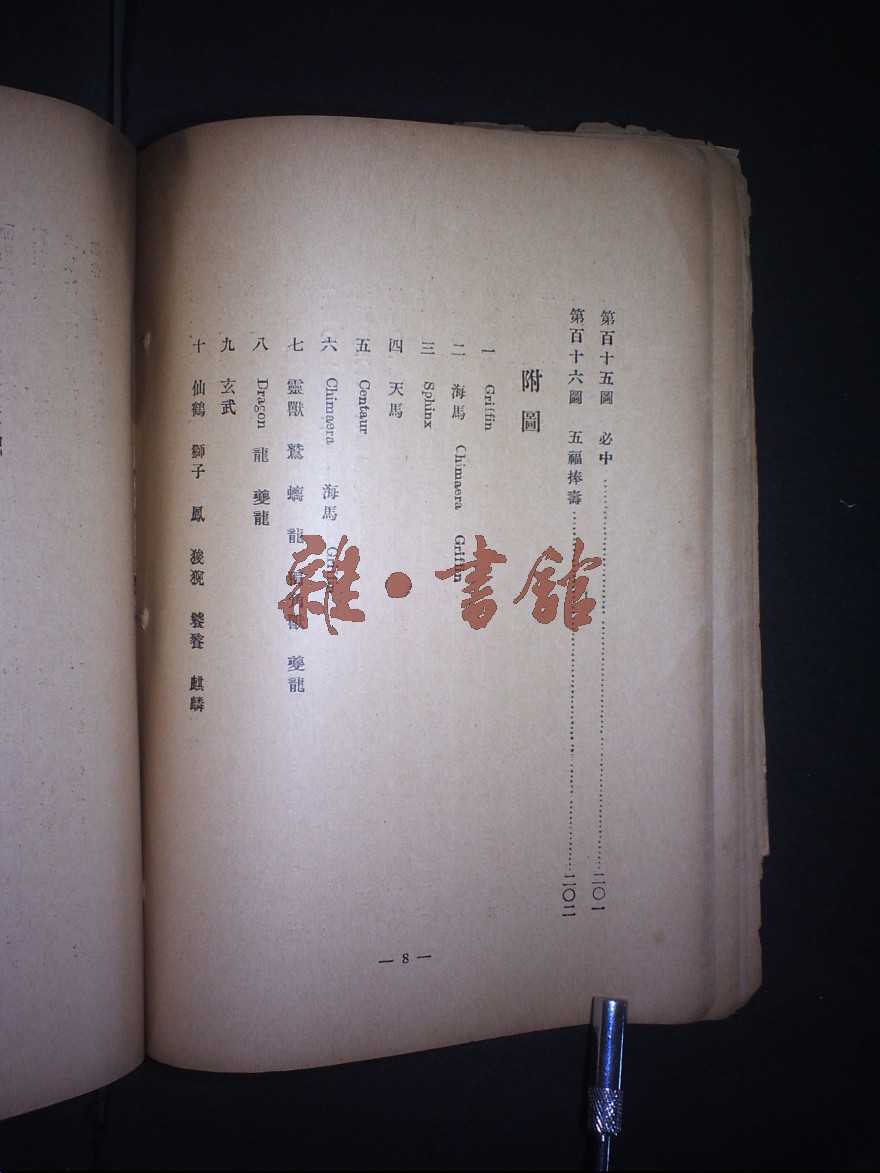 第百十五圖 必中……二〇一
第百十六圖 五福捧壽……二〇二
附圖
一 Griffin
二 海馬 Chimaera Griffin
三 Sphinx
四 天馬
五 Centaur
六 Chimaera 海馬 Griffin
七 靈獸 鷲 螭 龍 獸 夔龍
八 Dragon 龍 夔龍
九 玄武
十 仙鶴 獅子 鳳 狻猊 饕餮 麒麟
— 8 —
雜·書館